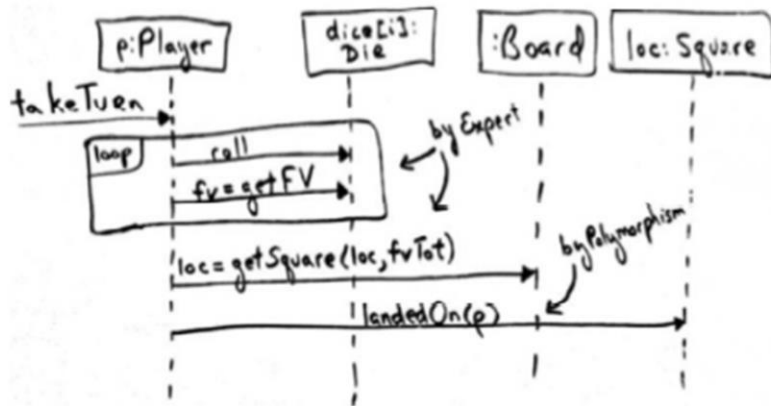 p:Player
dice[i]:
Die
:Board
loc: Square
takeTurn
loop
roll
fv=getFV
by Expert
loc=getSquare(loc,fvTot)
by Polymorphism
landedOn(p)